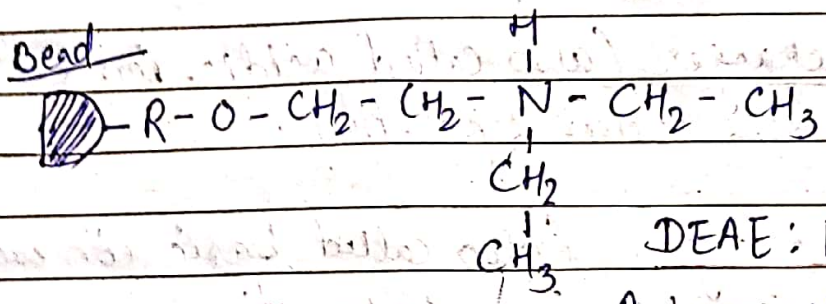 Bead
H
R - O - CH₂ - CH₂ - N - CH₂ - CH₃
CH₂
CH₃
DEAE :